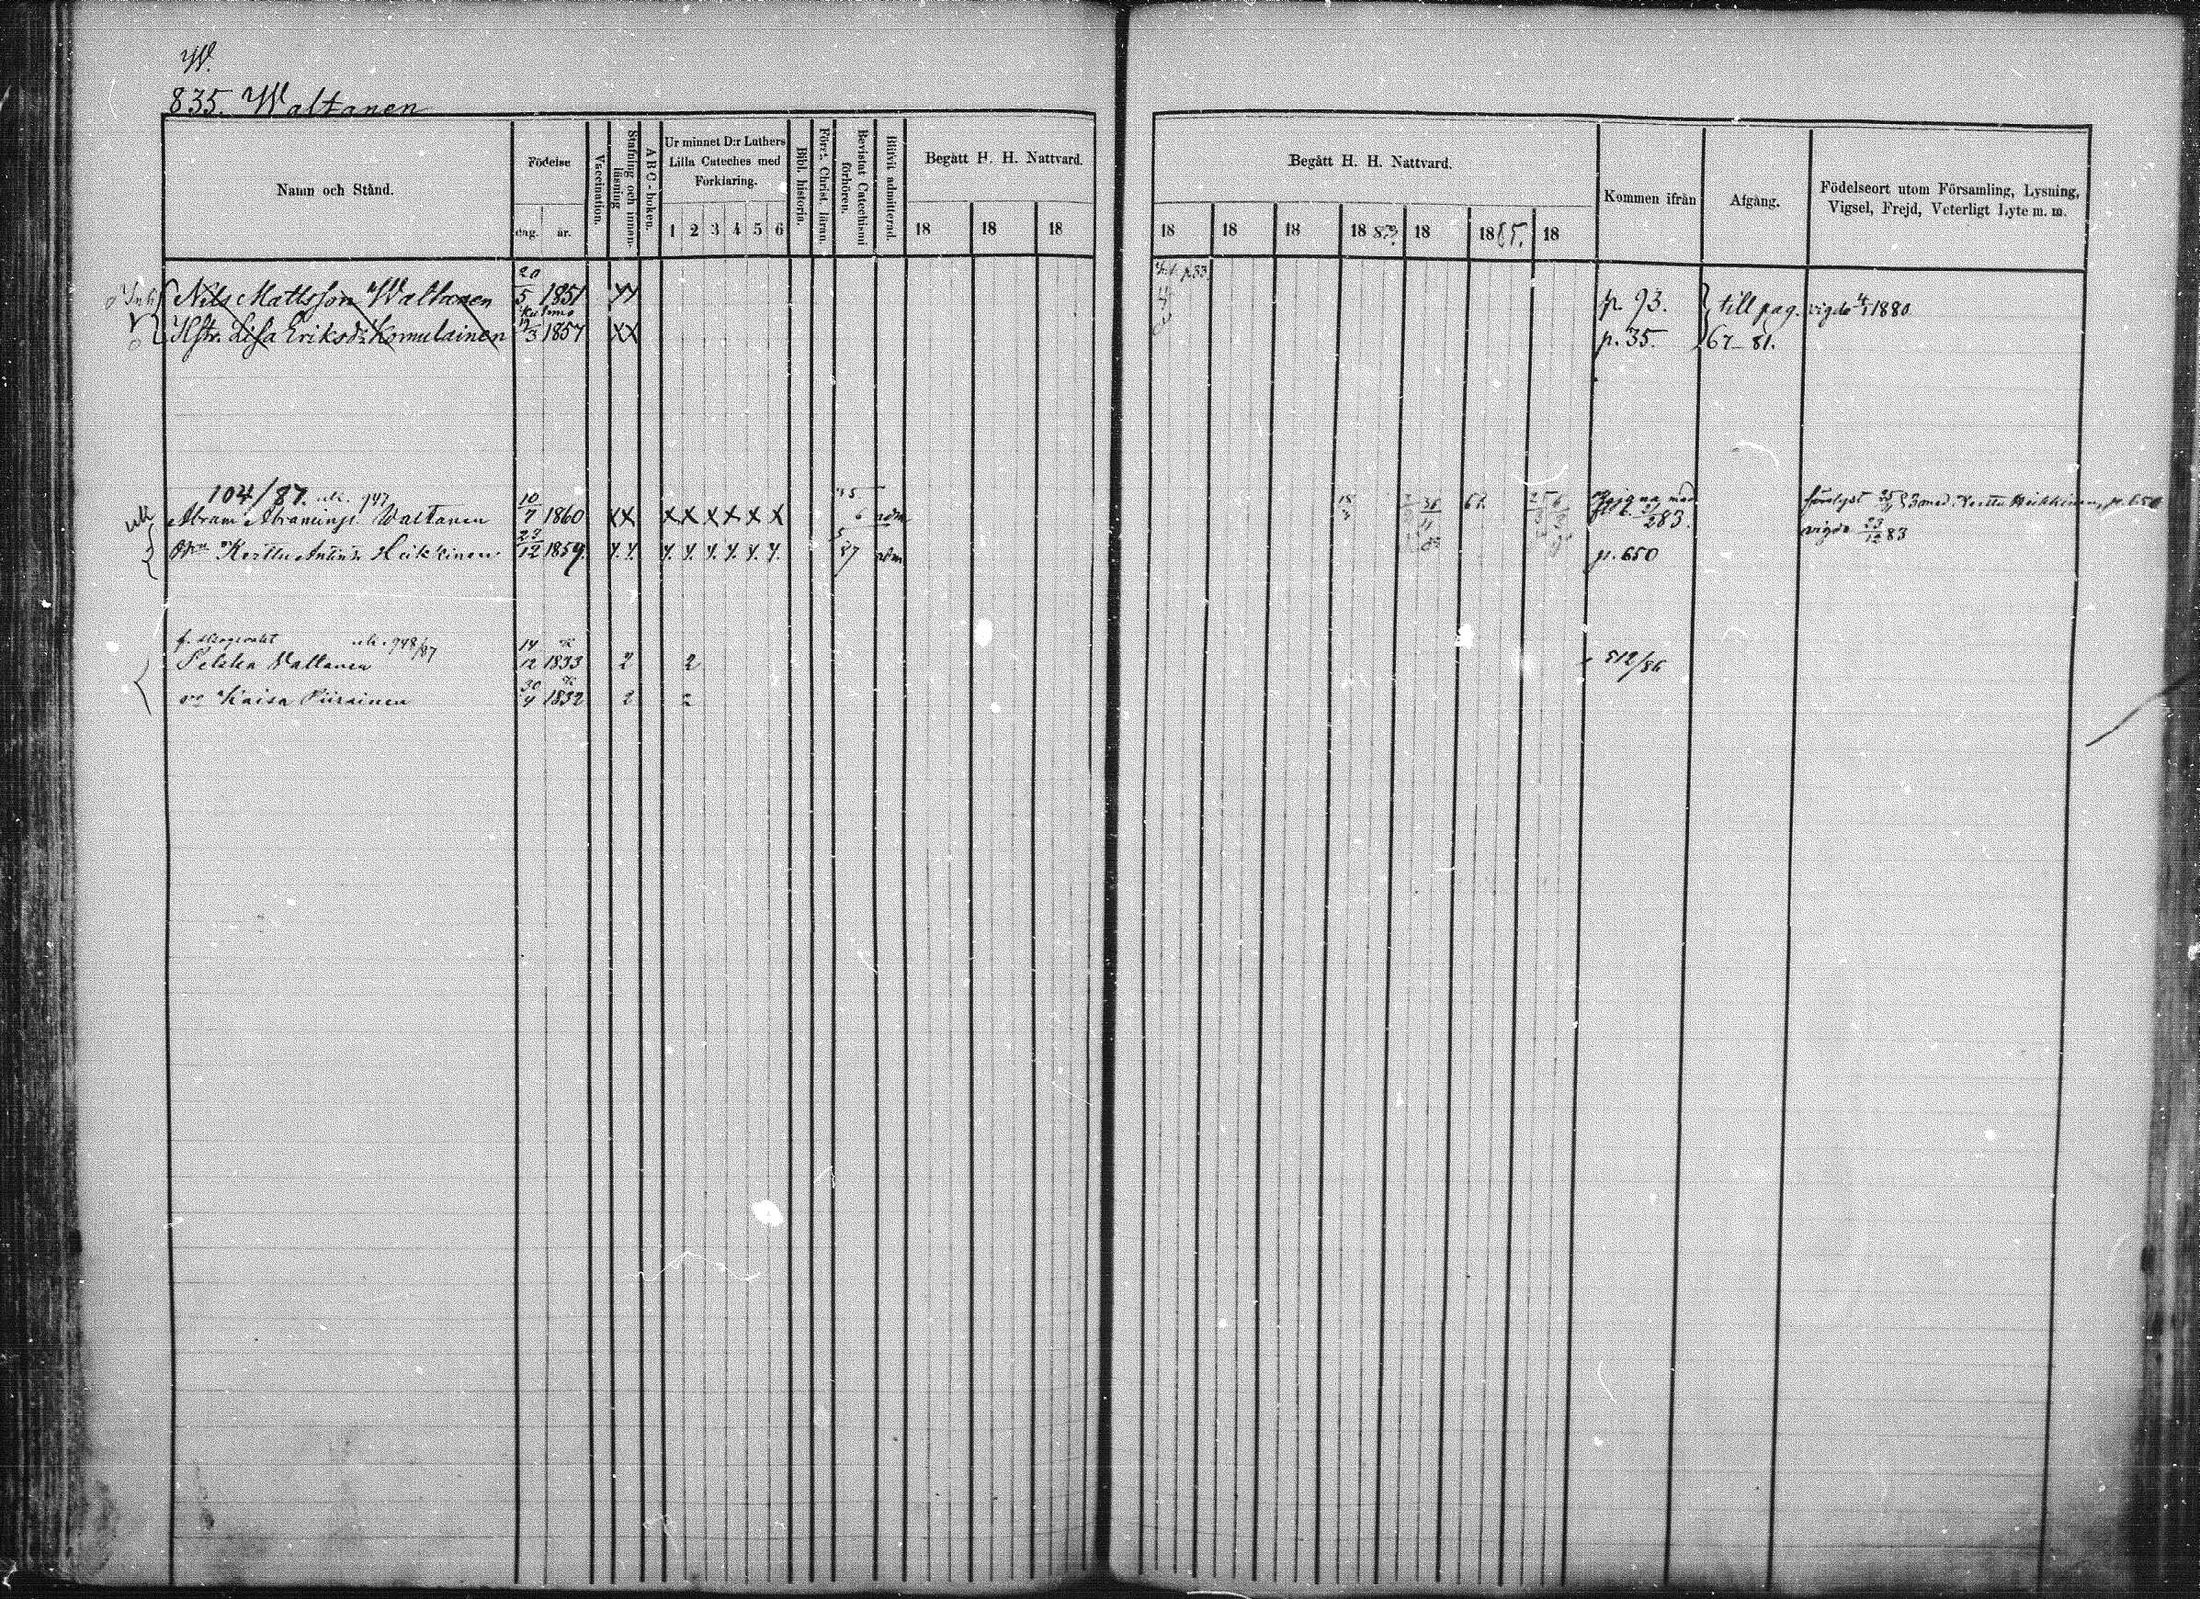 W.
835. Waltanen
Namn och Stånd.
Födelse
dag. år.
Vaccination.
Stafning och innan-
läsning
ABC-boken.
Ur minnet D:r Luthers
Lilla Cateches med
Forklaring.
1 2 3 4 5 6
Bibl. historia.
Förrt. Christ. läran.
Bevistat Catechismi
förhören.
Blifvit admitterad.
Begått H. H. Nattvard.
18 18 18
Begått H. H. Nattvard.
18 18 18 18 83. 18 18 85. 18
Kommen ifrån
Afgång.
Födelseort utom Församling, Lysning,
Vigsel, Frejd, Veterligt Lyte m. m.
Nils Mattsson Waltanen 20/5 1851 p. 93. till pag. vigde 4/1 1880
Hstr. Lisa Eriksdr Komulainen 1857 XX p. 35. 67-81.
104/87. 947
Abram Abramsps. Waltanen 10/7 1860 XX X X X X X X 6 adm 283.
Kerttu Antint. Heikkinen 23/12 1859. 87 adm p. 650
med Kerttu Heikkinen, p. 650
vigde 23/12 83
948/87
Pekka Valtanen 14/12 1833 2 2 512/86
Kaisa Piirainen 30/4 1832 2 2